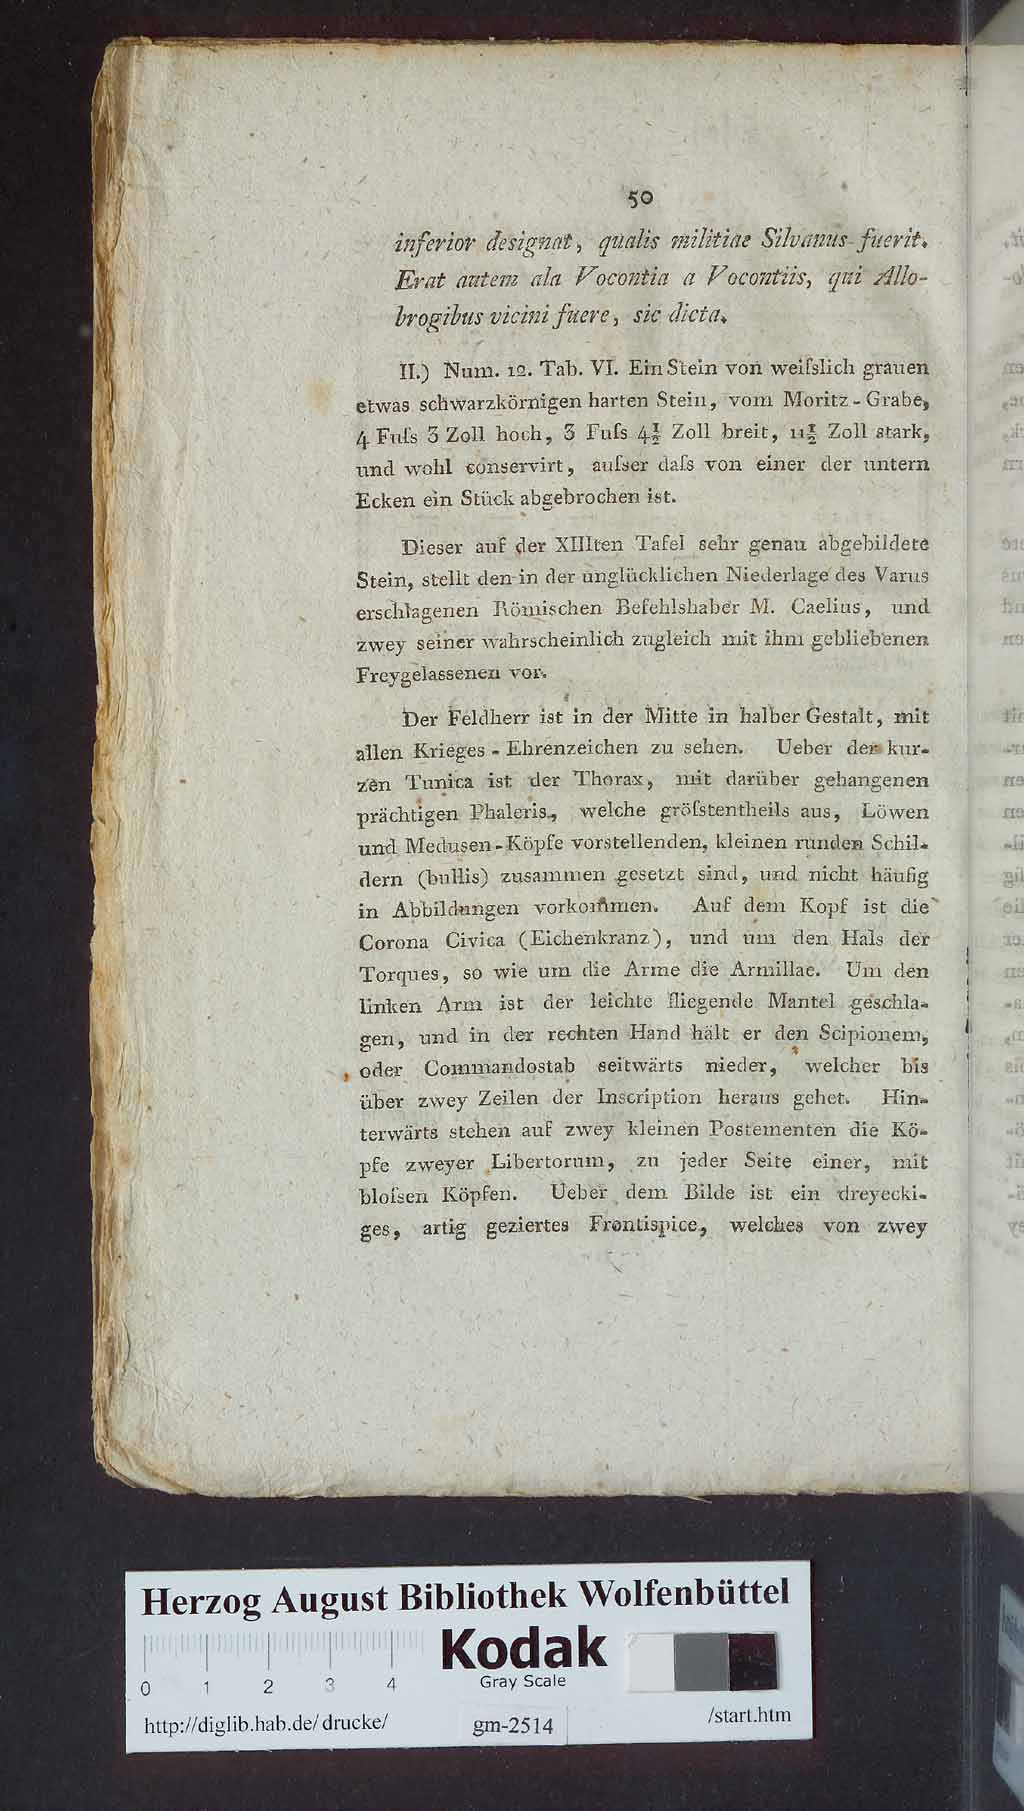 50
inferior designat, qualis militiae Silvanus fuerit.
Erat autem ala Vocontia a Vocontiis, qui Allo-
brogibus vicini fuere, sic dicta.
II.) Num. 12. Tab. VI. Ein Stein von weiſslich grauen
etwas schwarzkörnigen harten Stein, vom Moritz-Grabe,
4 Fuſs 3 Zoll hoch, 3 Fuſs 4½ Zoll breit, 11½ Zoll stark,
und wohl conservirt, auſser daſs von einer der untern
Ecken ein Stück abgebrochen ist.
Dieser auf der XIIIten Tafel sehr genau abgebildete
Stein, stellt den in der unglücklichen Niederlage des Varus
erschlagenen Römischen Befehlshaber M. Caelius, und
zwey seiner wahrscheinlich zugleich mit ihm gebliebenen
Freygelassenen vor.
Der Feldherr ist in der Mitte in halber Gestalt, mit
allen Krieges-Ehrenzeichen zu sehen. Ueber der kur-
zen Tunica ist der Thorax, mit darüber gehangenen
prächtigen Phaleris, welche gröſstentheils aus, Löwen
und Medusen-Köpfe vorstellenden, kleinen runden Schil-
dern (bullis) zusammen gesetzt sind, und nicht häufig
in Abbildungen vorkommen. Auf dem Kopf ist die
Corona Civica (Eichenkranz), und um den Hals der
Torques, so wie um die Arme die Armillae. Um den
linken Arm ist der leichte fliegende Mantel geschla-
gen, und in der rechten Hand hält er den Scipionem,
oder Commandostab seitwärts nieder, welcher bis
über zwey Zeilen der Inscription heraus gehet. Hin-
terwärts stehen auf zwey kleinen Postementen die Kö-
pfe zweyer Libertorum, zu jeder Seite einer, mit
bloſsen Köpfen. Ueber dem Bilde ist ein dreyecki-
ges, artig geziertes Frontispice, welches von zwey
Herzog August Bibliothek Wolfenbüttel
Kodak
Gray Scale
0 1 2 3 4
http://diglib.hab.de/drucke/ gm-2514 /start.htm